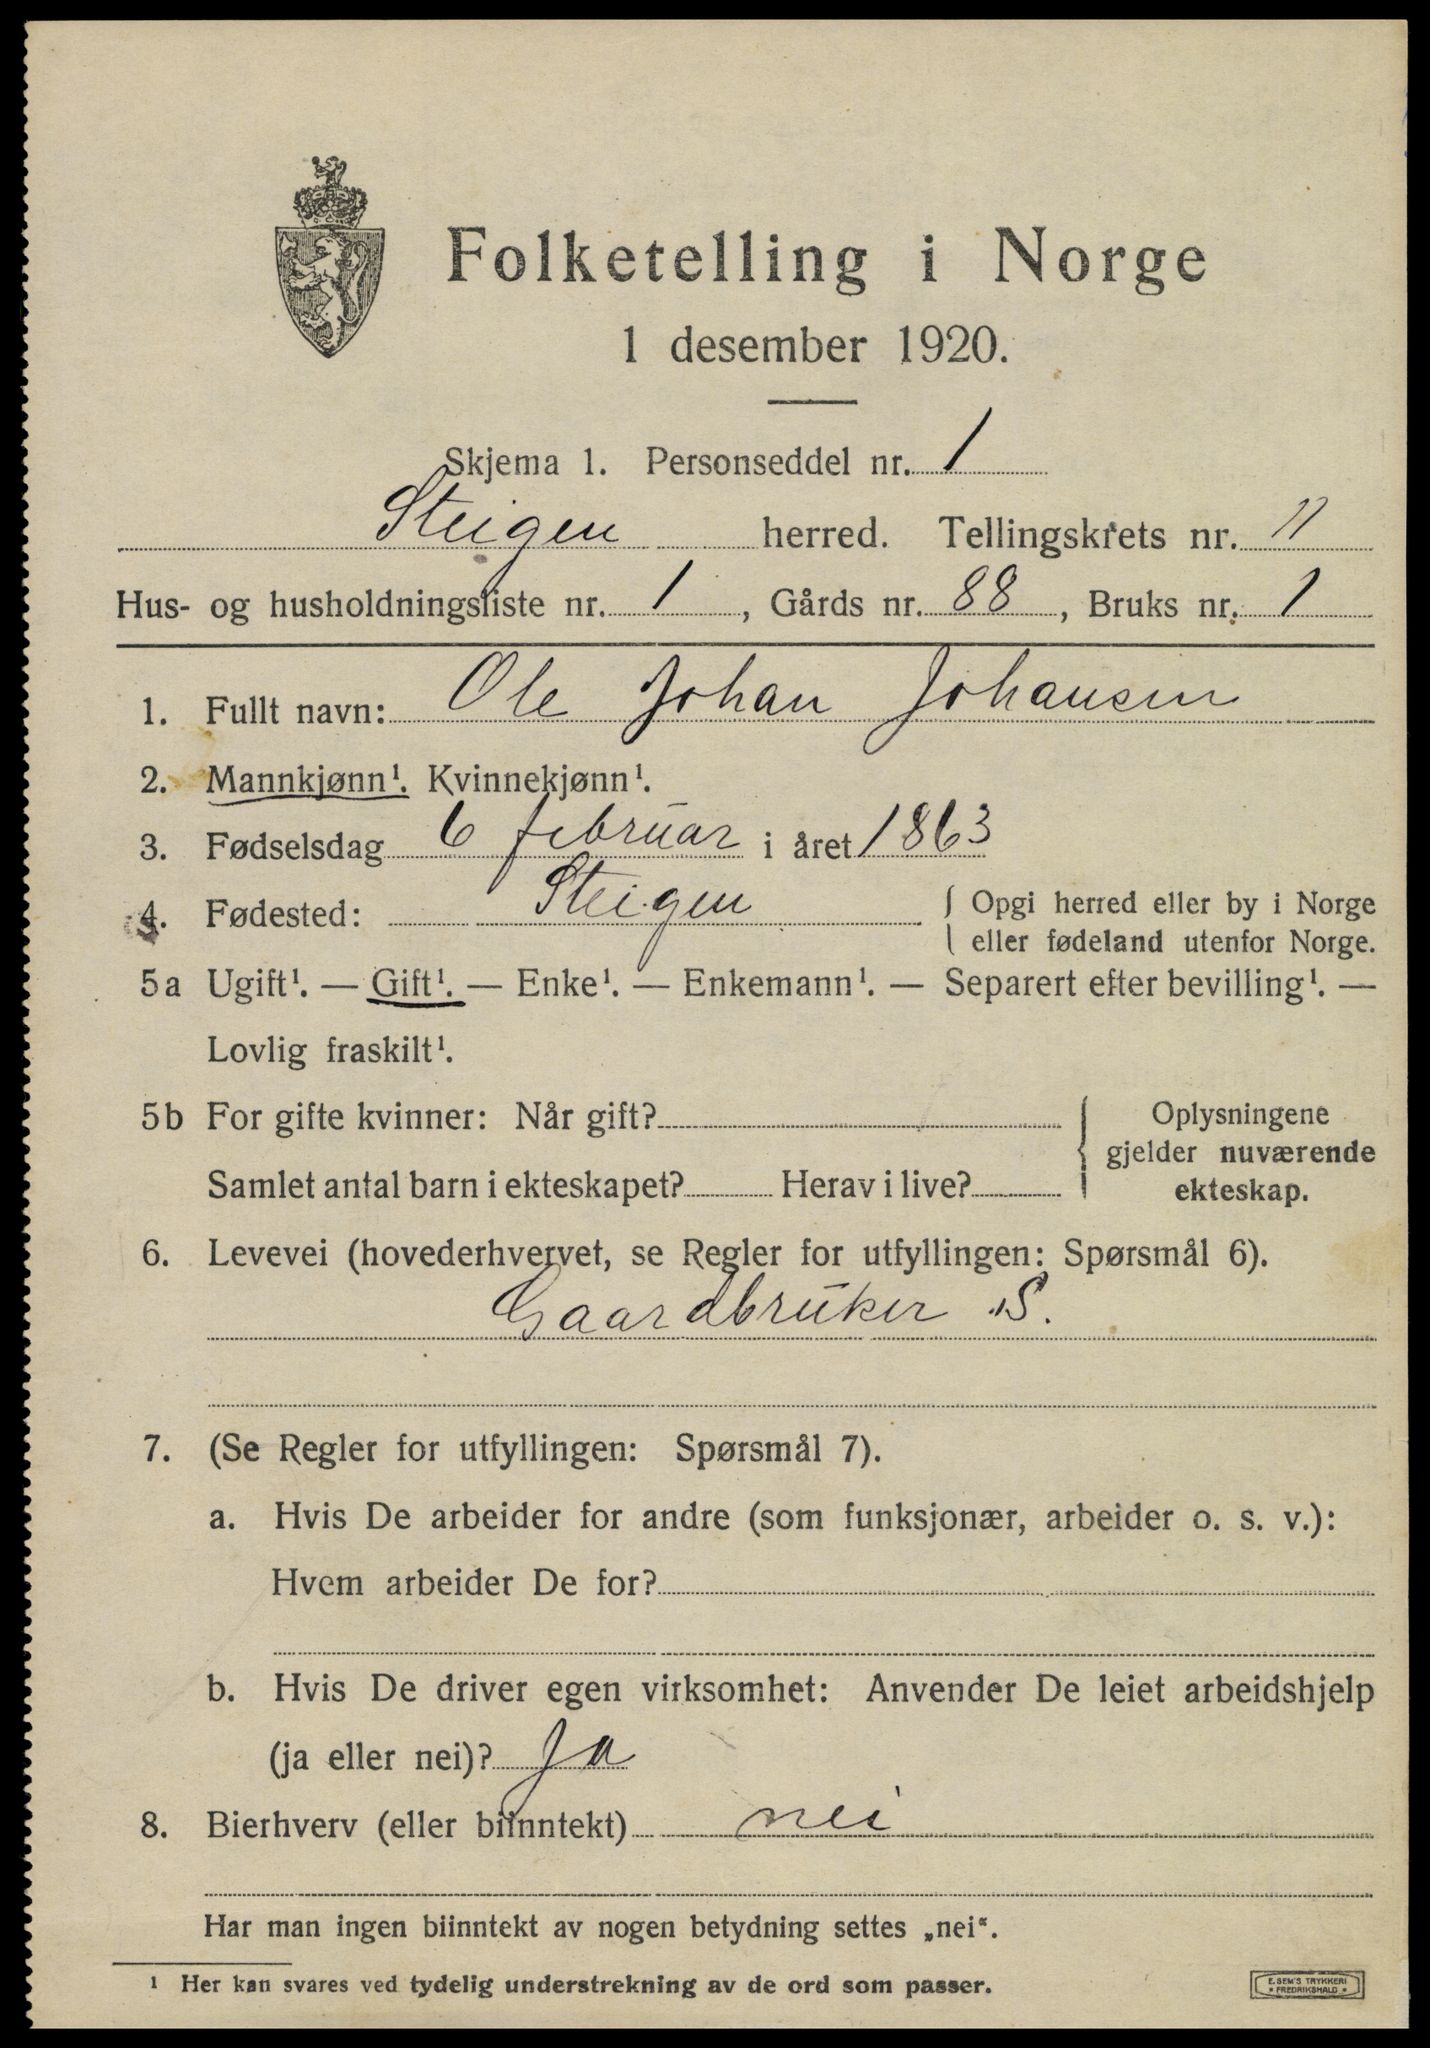 Folketelling i Norge
1 desember 1920.
Skjema 1. Personseddel nr. 1
Steigen herred. Tellingskrets nr. 11
Hus- og husholdningsliste nr. 1, Gårds nr. 88, Bruks nr. 1
1. Fullt navn: Ole Johan Johansen
2. Mannkjønn¹. Kvinnekjønn¹.
3. Fødselsdag 6 februar i året 1863
4. Fødested: Steigen { Opgi herred eller by i Norge
eller fødeland utenfor Norge.
5a Ugift¹. — Gift¹. — Enke¹. — Enkemann¹. — Separert efter bevilling¹. —
Lovlig fraskilt¹.
5b For gifte kvinner: Når gift?
Samlet antal barn i ekteskapet? Herav i live?
Oplysningene
gjelder nuværende
ekteskap.
6. Levevei (hovederhvervet, se Regler for utfyllingen: Spørsmål 6).
Gaardbruker S.
7. (Se Regler for utfyllingen: Spørsmål 7).
a. Hvis De arbeider for andre (som funksjonær, arbeider o. s. v.):
Hvem arbeider De for?
b. Hvis De driver egen virksomhet: Anvender De leiet arbeidshjelp
(ja eller nei)? Ja
8. Bierhverv (eller biinntekt) nei
Har man ingen biinntekt av nogen betydning settes „nei“.
¹ Her kan svares ved tydelig understrekning av de ord som passer.
E. SEM'S TRYKKERI
FREDRIKSHALD